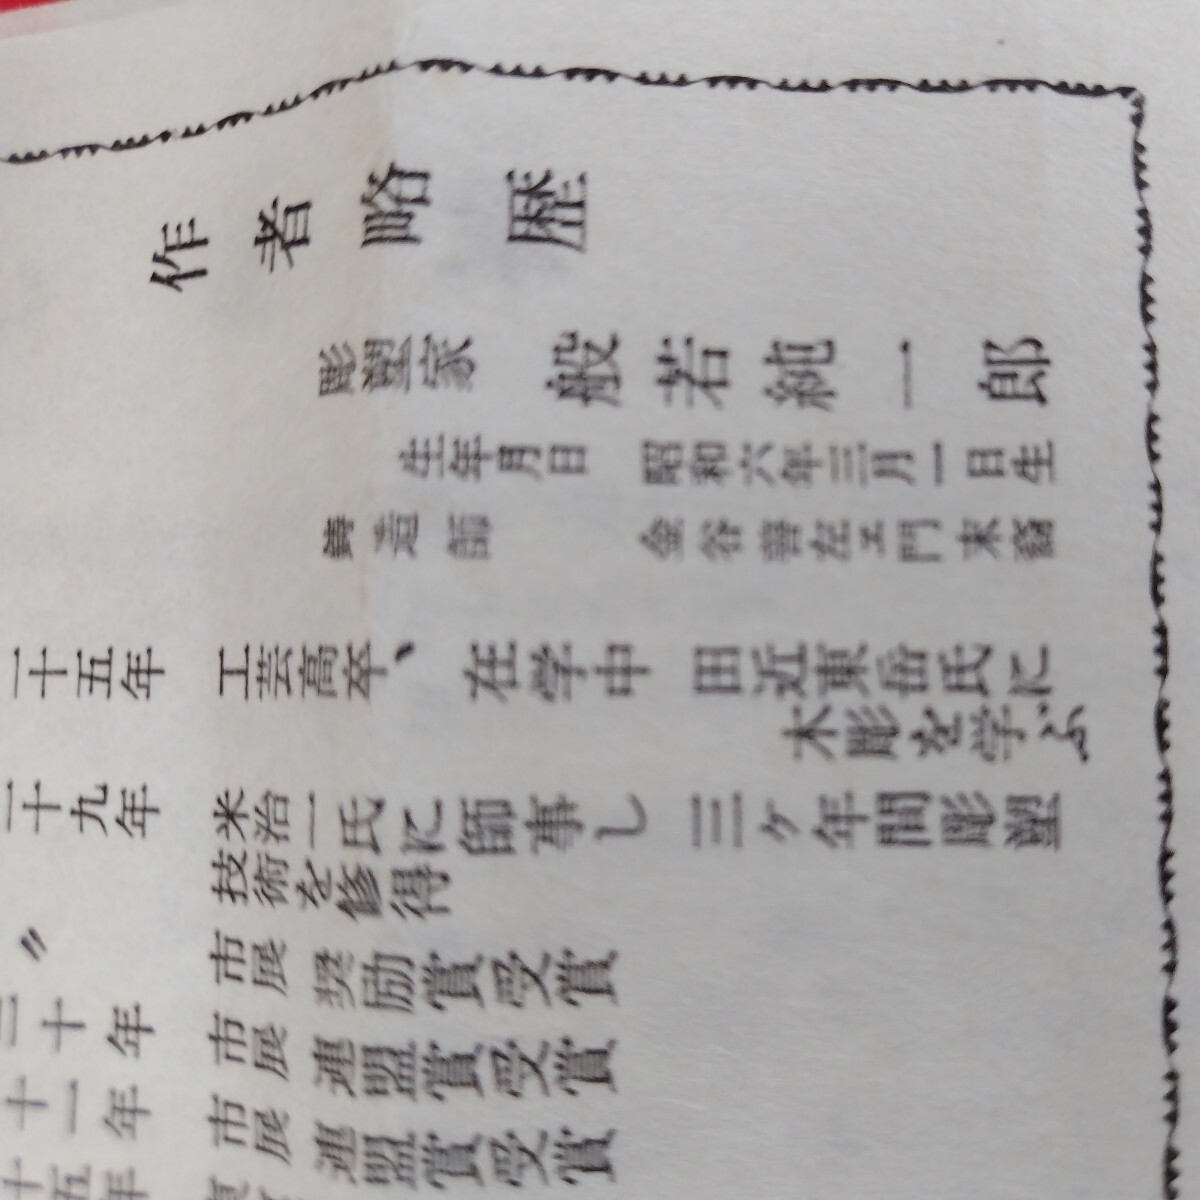 作者略歴
彫塑家 般若純一郎
生年月日 昭和六年三月一日生
鋳造師 金谷善左エ門末裔
二十五年 工芸高卒、在学中 田近東岳氏に
木彫を学ぶ
二十九年 米治一氏に師事し 三ヶ年間彫塑
技術を修得
〃 市展 奨励賞受賞
三十年 市展 連盟賞受賞
十一年 市展 連盟賞受賞
十五年